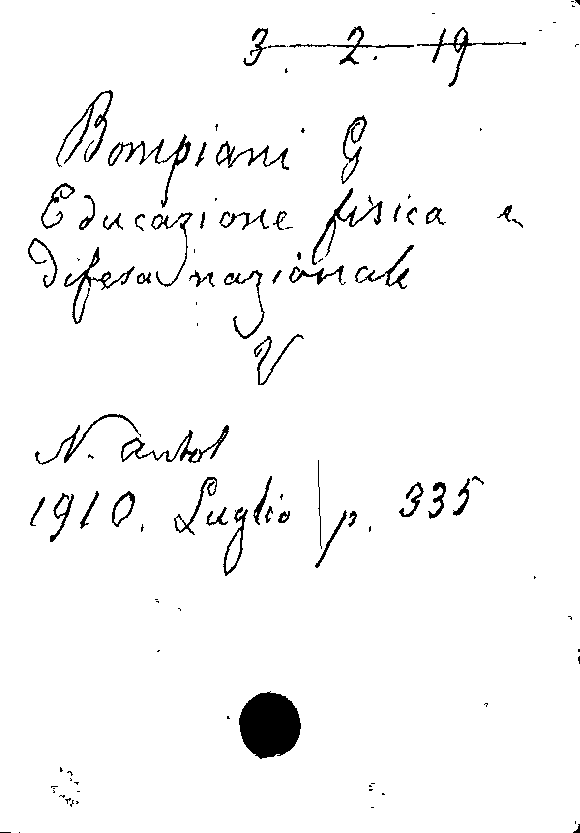 3. 2. 19
Bompiani G
Educazione fisica e
difesa nazionale
V
N. antol
1910. Luglio | p. 335